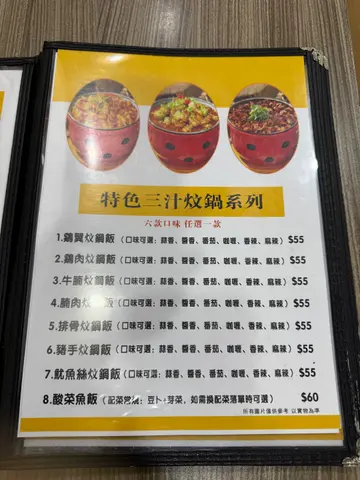 特色三汁炆鍋系列
六款口味 任選一款
1.鷄翼炆鍋飯（口味可選：蒜香、醬香、番茄、咖喱、香辣、麻辣）$55
2.鷄肉炆鍋飯（口味可選：蒜香、醬香、番茄、咖喱、香辣、麻辣）$55
3.牛腩炆鍋飯（口味可選：蒜香、醬香、番茄、咖喱、香辣、麻辣）$55
4.腩肉炆鍋飯（口味可選：蒜香、醬香、番茄、咖喱、香辣、麻辣）$55
5.排骨炆鍋飯（口味可選：蒜香、醬香、番茄、咖喱、香辣、麻辣）$55
6.豬手炆鍋飯（口味可選：蒜香、醬香、番茄、咖喱、香辣、麻辣）$55
7.魷魚絲炆鍋飯（口味可選：蒜香、醬香、番茄、咖喱、香辣、麻辣）$55
8.酸菜魚飯（配菜常規：豆卜+芽菜，如需換配菜落單時可選）$60
所有圖片僅供參考 以實物為準